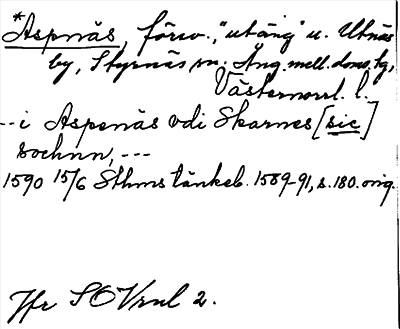 *Aspnäs, försv., "utäng" u. Utnäs
by, Styrnäs sn, Ång. mell. doms. tg,
Västernorrl. l.
--i Aspenäs vdi Skarnes [sic]
sochnn, ---
1590 15/6 Sthms tänkeb. 1589-91, s. 180. orig.
Jfr SOVnl 2.